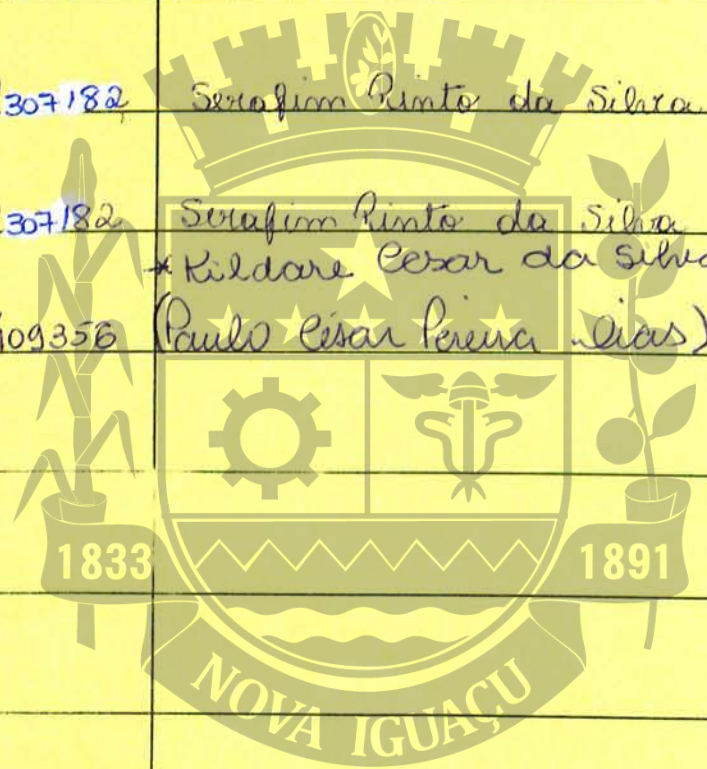 307182 Serafim Pinto da Silva
307182 Serafim Pinto da Silva
* Kildare Cesar da Silva
109356 (Paulo César Pereira Dias)
1833 1891
NOVA IGUAÇU